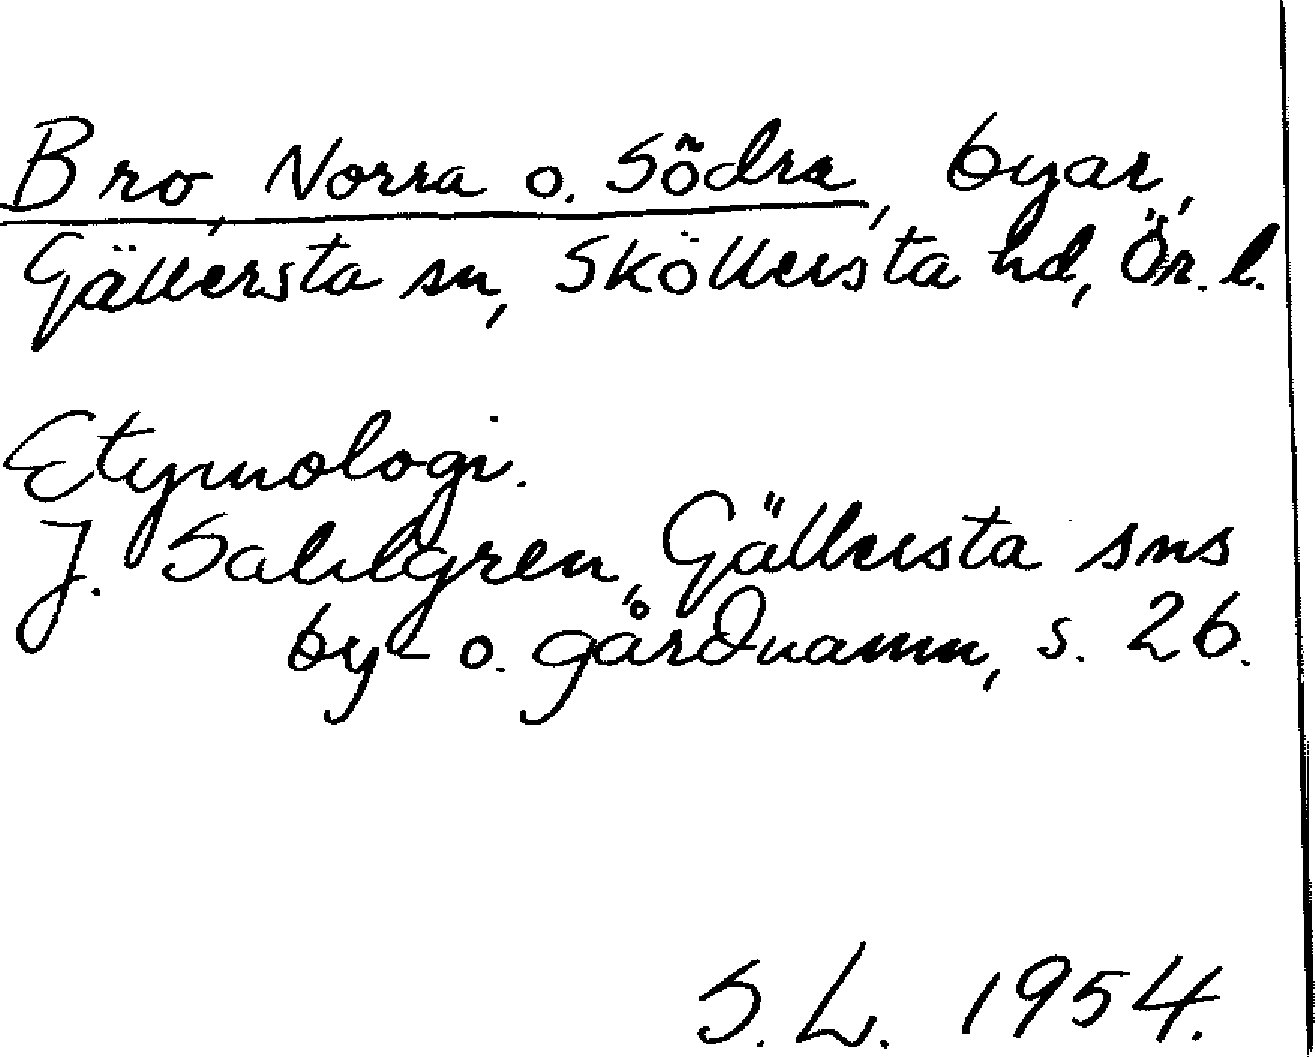 Bro, Norra o. Södra, byar,
Gällersta sn, Sköllersta hd, Ör. l.
Etymologi.
J. Sahlgren, Gällersta sns
by- o. gårdnamn, s. 26.
S. L. 1954.